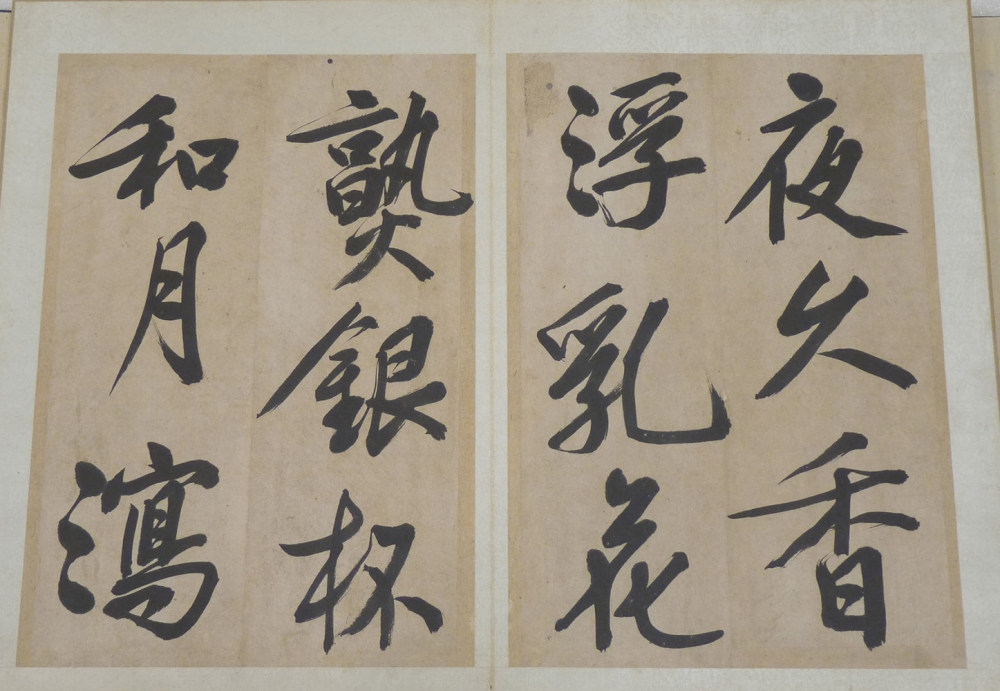 夜久香
浮乳花
銀杯
和月瀉